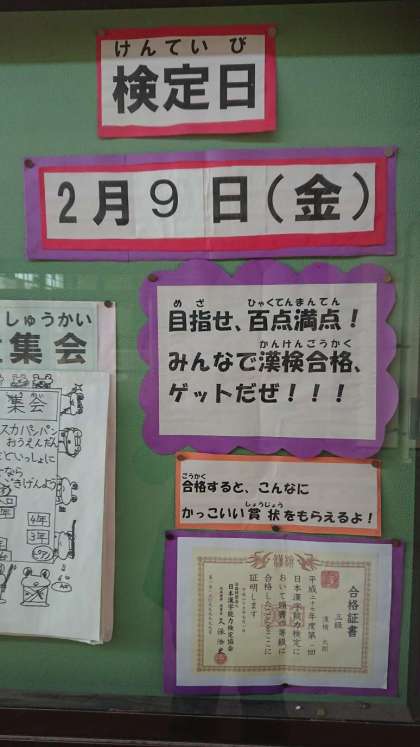 けんていび
検定日
2月9日(金)
めざ ひゃくてんまんてん
目指せ、百点満点!
かんけんごうかく
みんなで漢検合格、
ゲットだぜ!!!
ごうかく
合格すると、こんなに
しょうじょう
かっこいい賞状をもらえるよ!
しゅうかい
集会
集会
スカパンパン
おうえんだん
いっしょに
なら
きげんよう
4年
3年
合格証書
五級
漢検 太郎
平成二十七年度第一回
日本漢字能力検定に
おいて頭書の等級に
合格したことをここに
証明します
日本漢字能力検定協会